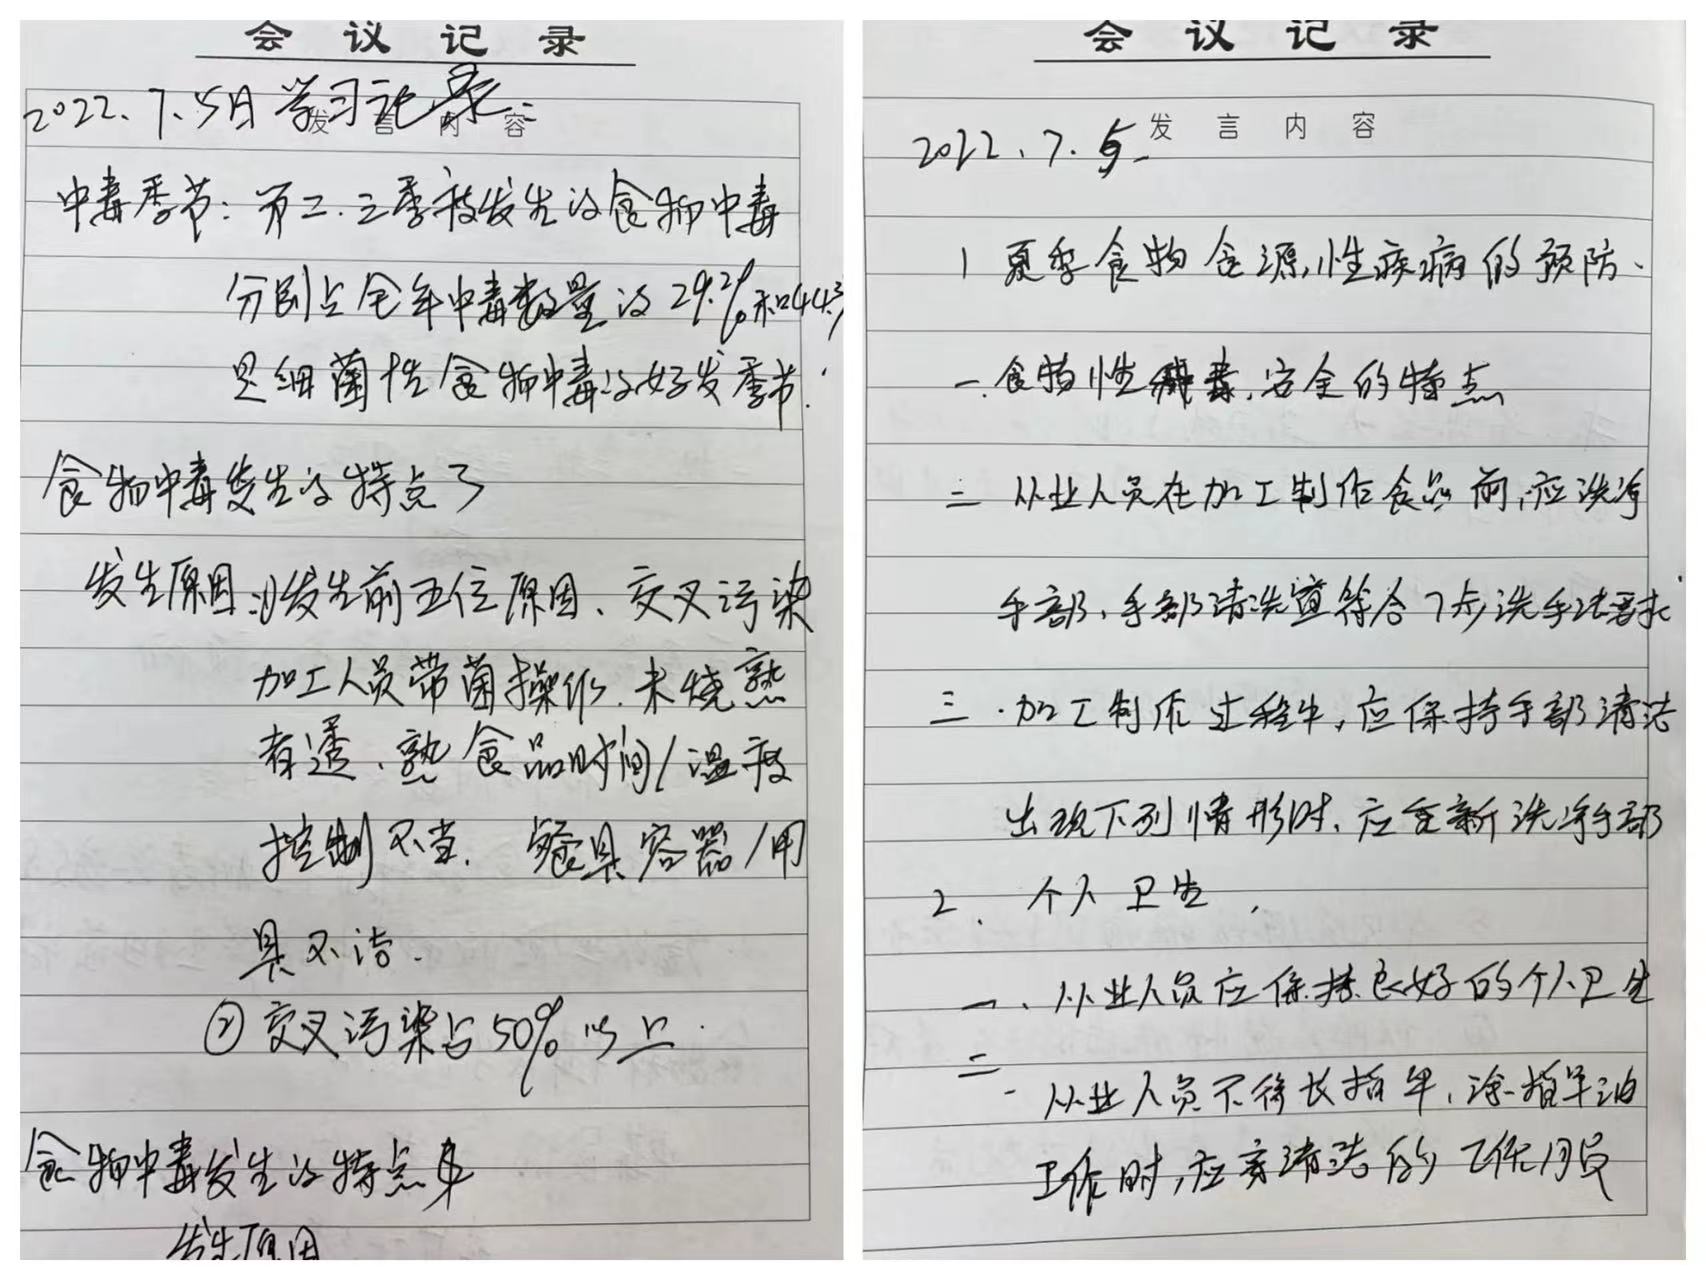 会议记录
2022.7.5日学习记录:
发言内容
中毒季节:第二.三季度发生的食物中毒
分别占全年中毒数量的29.2%和44.3
是细菌性食物中毒的好发季节.
食物中毒发生的特点了
发生原因:①发生前五位原因、交叉污染
加工人员带菌操作.未烧熟
有透、熟食品时间/温度
控制不当. 餐具容器/用
具不洁.
②交叉污染占50%以上.
食物中毒发生的特点
发生原因
会议记录
发言内容
2022.7.5
1 夏季食物食源性疾病的预防.
一.食物性 毒.安全的特点
二 从业人员在加工制作食品前,应洗净
手部,手部清洗宜符合7步洗手法要求
三.加工制作过程中,应保持手部清洁
出现下列情形时,应重新洗净手部
2.个人卫生.
一、从业人员应保持良好的个人卫生
二.从业人员不得长指甲,涂指甲油
工作时,应穿清洁的工作